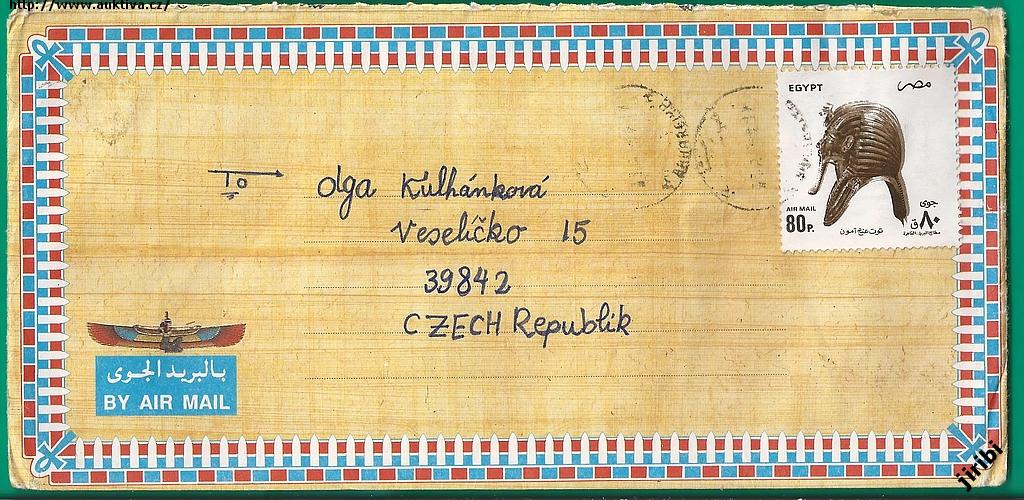 http://www.auktiva.cz/
EGYPT مصر
AIR MAIL
80P.
جوى
٨٠ ق
توت عنخ آمون
To
Olga Kulhánková
Veselíčko 15
39842
CZECH Republik
بالبريد الجوى
BY AIR MAIL
jiribi